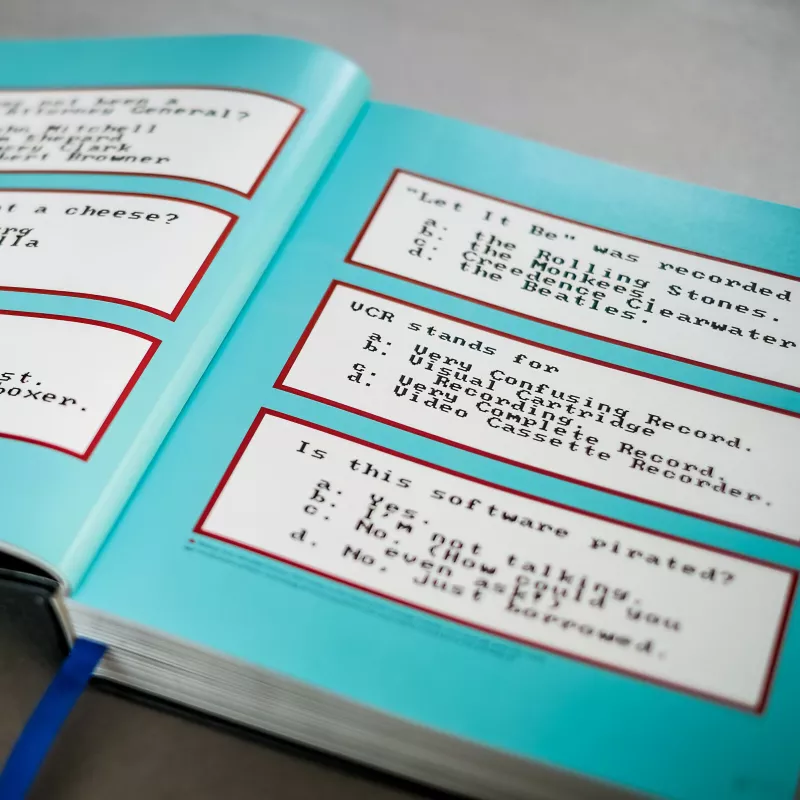 not been a
Attorney General?
John Mitchell
Shepard
Clark
Browner
a cheese?
st.
boxer.
"Let It Be" was recorded
a. the Rolling Stones.
b. the Monkees.
c. Creedence Clearwater
d. the Beatles.
VCR stands for
a. Very Confusing Record.
b. Visual Cartridge
Recording.
c. Very Complete Record.
d. Video Cassette Recorder.
Is this software pirated?
a. Yes.
b. I'm not talking.
c. No. (How could you
even ask?)
d. No, just borrowed.